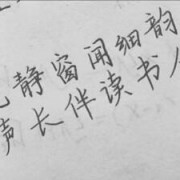 静窗闻细韵
声长伴读书